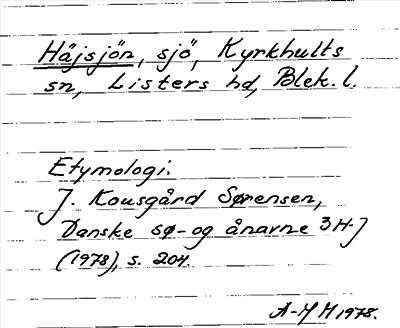 Häjsjön, sjö, Kyrkhults
sn, Listers hd, Blek. l.
Etymologi.
J. Kousgård Sørensen,
Danske sø- og ånavne 3 H-J
(1978), s. 204.
A-M H 1978.